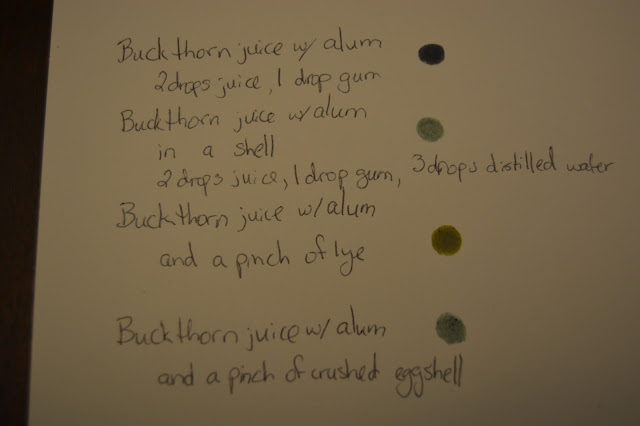 Buckthorn juice w/ alum
2 drops juice, 1 drop gum
Buckthorn juice w/ alum
in a shell
2 drops juice, 1 drop gum, 3 drops distilled water
Buckthorn juice w/ alum
and a pinch of lye
Buckthorn juice w/ alum
and a pinch of crushed eggshell